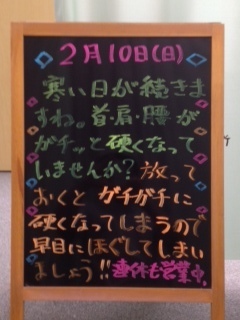 2月10日(日)
寒い日が続きま
すね。首・肩・腰が
ガチッと硬くなって
いませんか？放って
おくとガチガチに
硬くなってしまうので
早目にほぐしてしまい
ましょう!!連休も営業中。